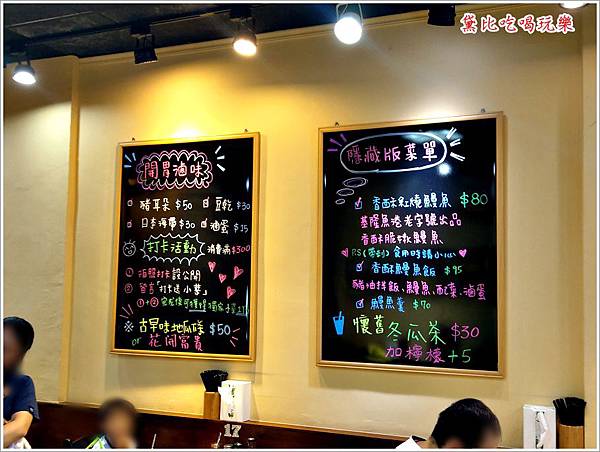 黛比吃喝玩樂
開胃滷味
豬耳朵 $50
豆乾 $30
日本海帶 $30
滷蛋 $15
打卡活動 消費滿$300
① 拍照打卡設公開
② 留言「打卡送小菜」
※ 古早味地瓜條 $50
or 花開富貴
隱藏版菜單
香酥紅燒鰻魚 $80
基隆魚港老字號出品
香酥脆嫩鰻魚
P.S(帶刺) 食用時請小心
香酥鰻魚飯 $95
豬油拌飯、鰻魚、配菜、滷蛋
鰻魚羹 $70
懷舊冬瓜茶 $30
加檸檬 +5
17